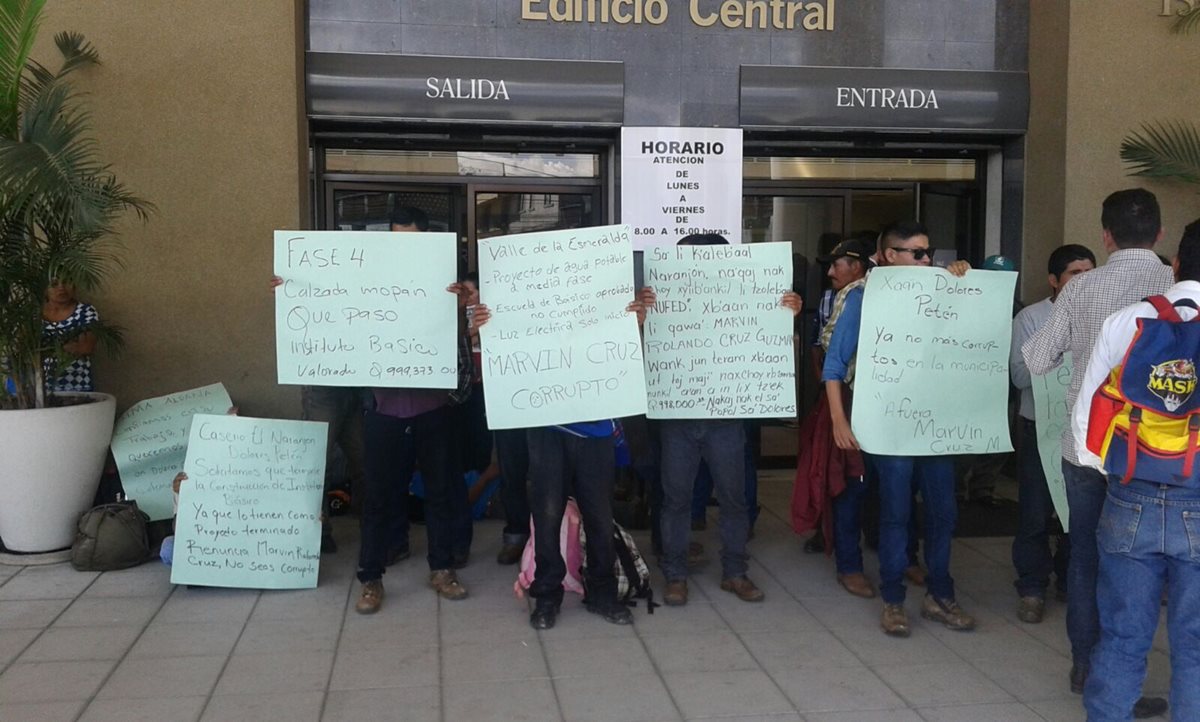 Edificio Central
SALIDA
ENTRADA
HORARIO
ATENCION
DE
LUNES
A
VIERNES
DE
8.00 A 16.00 horas.
FASE 4
Calzada mopan
Que paso
Instituto Basico
Valorado Q 999,373 00
"Valle de la Esmeralda"
- Proyecto de agua potable
a media fase
- Escuela de Básico aprobado
no cumplido
- Luz Electrica Solo inicio
"MARVIN CRUZ
CORRUPTO"
Sa' li Kalebaal
Naranjón, na'qaj nak
li qawa': MARVIN
ROLANDO CRUZ GUZMAN
wank jun teram xb'aan
Q 998,000.00 Nakaj nak el sa'
Popol Sa' Dolores
Xaan Dolores
Petén
Ya no más corrup
tos en la municipa
lidad
"Afuera
Marvin
Cruz M
Caserio El Naranjon
Dolores, Petén
Solicitamos que termine
la Construcción de Instituto
Básico
Ya que lo tienen como
Proyecto terminado
Renuncia Marvin Rolando
Cruz, No seas corrupto
MASK